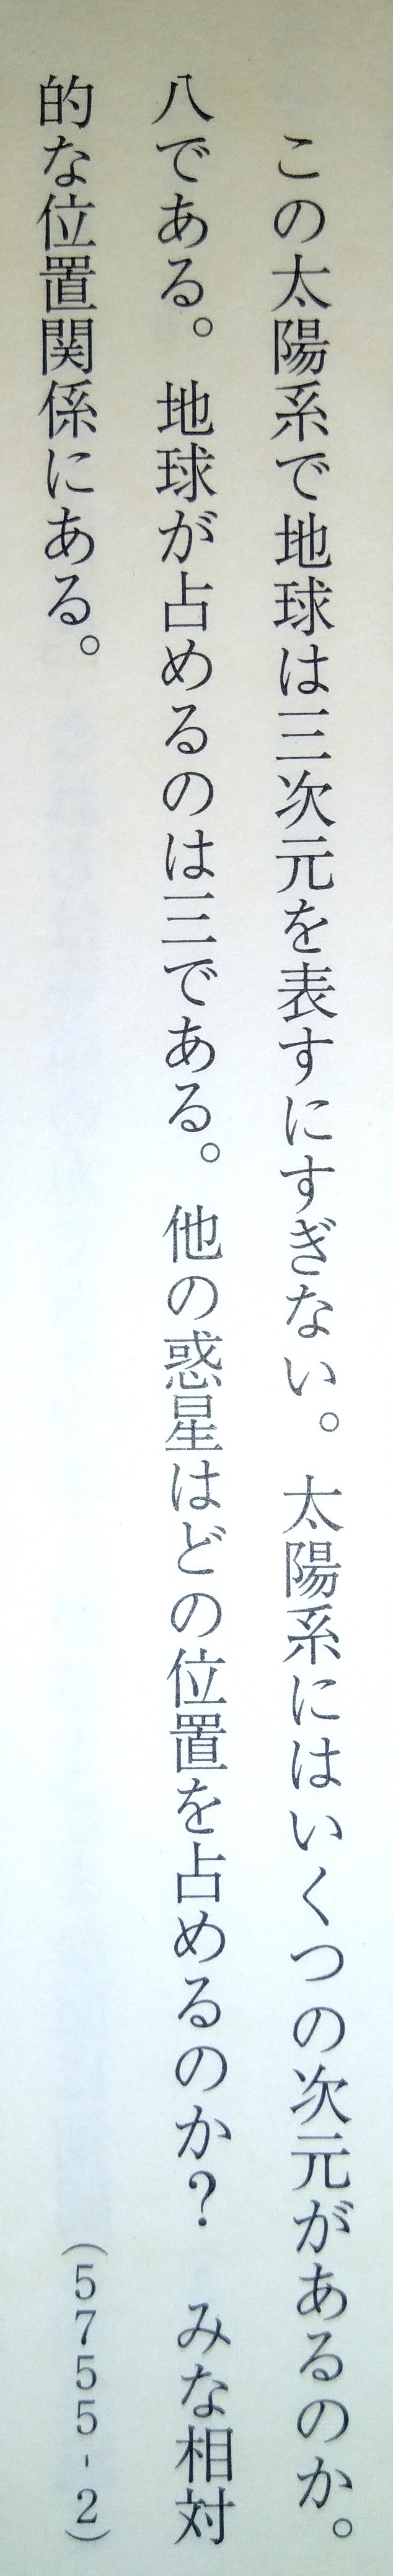 この太陽系で地球は三次元を表すにすぎない。太陽系にはいくつの次元があるのか。
八である。地球が占めるのは三である。他の惑星はどの位置を占めるのか？　みな相対
的な位置関係にある。（5755-2）